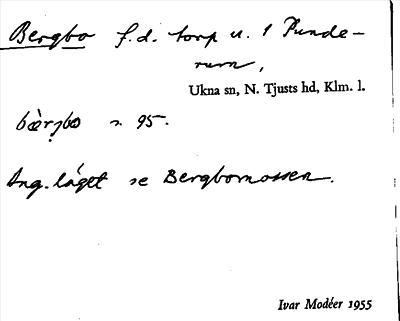 Bergbo f.d. torp u. 1 Funde-
rum,
Ukna sn, N. Tjusts hd, Klm. l.
bæ̀rjbo s. 95.
Ang. läget se Bergbomossen.
Ivar Modéer 1955